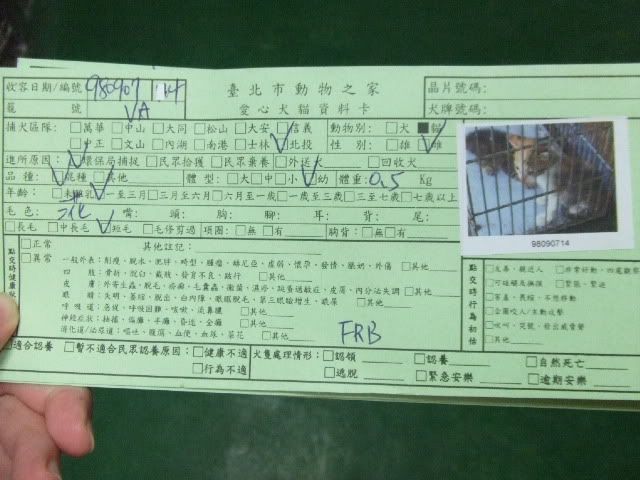 收容日期/編號 980907 14
籠 號 A
臺北市動物之家
愛心犬貓資料卡
晶片號碼:
犬牌號碼:
捕犬區隊: □萬華 □中山 □大同 □松山 □大安 □信義 動物別: □犬 ■貓
□中正 □文山 □內湖 □南港 □士林 □北投 性 別: □雄 □雌
進所原因: □環保局捕捉 □民眾拾獲 □民眾棄養 □外送犬 □回收犬
品 種: □混種 □其他 體 型: □大 □中 □小 □幼 體重: 0.5 Kg
年齡: □未離乳 □一至三月 □三月至六月 □六月至一歲 □一歲至三歲 □三至七歲 □七歲以上
毛色: 花 嘴: 頭: 胸: 腳: 耳: 背: 尾:
□長毛 □中長毛 □短毛 □毛修剪過 項圈: □無 □有 胸背: □無 □有
98090714
點交時健康狀
□正常
□異常
其他註記:
一般外表: 削瘦、脫水、肥胖、畸型、腫瘤、疝氣、虛弱、懷孕、發情、脹奶、外傷 □其他
四 肢: 骨折、脫臼、截肢、發育不良、跛行 □其他
皮 膚: 外寄生蟲、脫毛、疥癬、毛囊蟲、黴菌、濕疹、跳蚤過敏症、皮屑、內分泌失調 □其他
眼 睛: 失明、萎縮、脫出、白內障、眼瞼脫毛、第三眼瞼增生、眼屎 □其他
呼吸道: 急促、呼吸困難、咳嗽、流鼻膿 □其他
神經症狀: 抽搐、偏癱、半癱、昏迷、全癱 □其他
消化道/泌尿道: 嘔吐、腹瀉、血便、血尿、萊花 □其他
FRB
點交時行為初估
□友善、親近人 □非常好動、四處觀察
□可碰觸及撫摸 □緊張、緊迫
□害羞、畏縮、不想移動
□會攜咬人/主動攻擊
□吠叫、哭號、發出威脅聲
□其他
適合認養 □暫不適合民眾認養原因: □健康不適 □行為不適
犬隻處理情形: □認領 □認養 □自然死亡
□逃脫 □緊急安樂 □逾期安樂